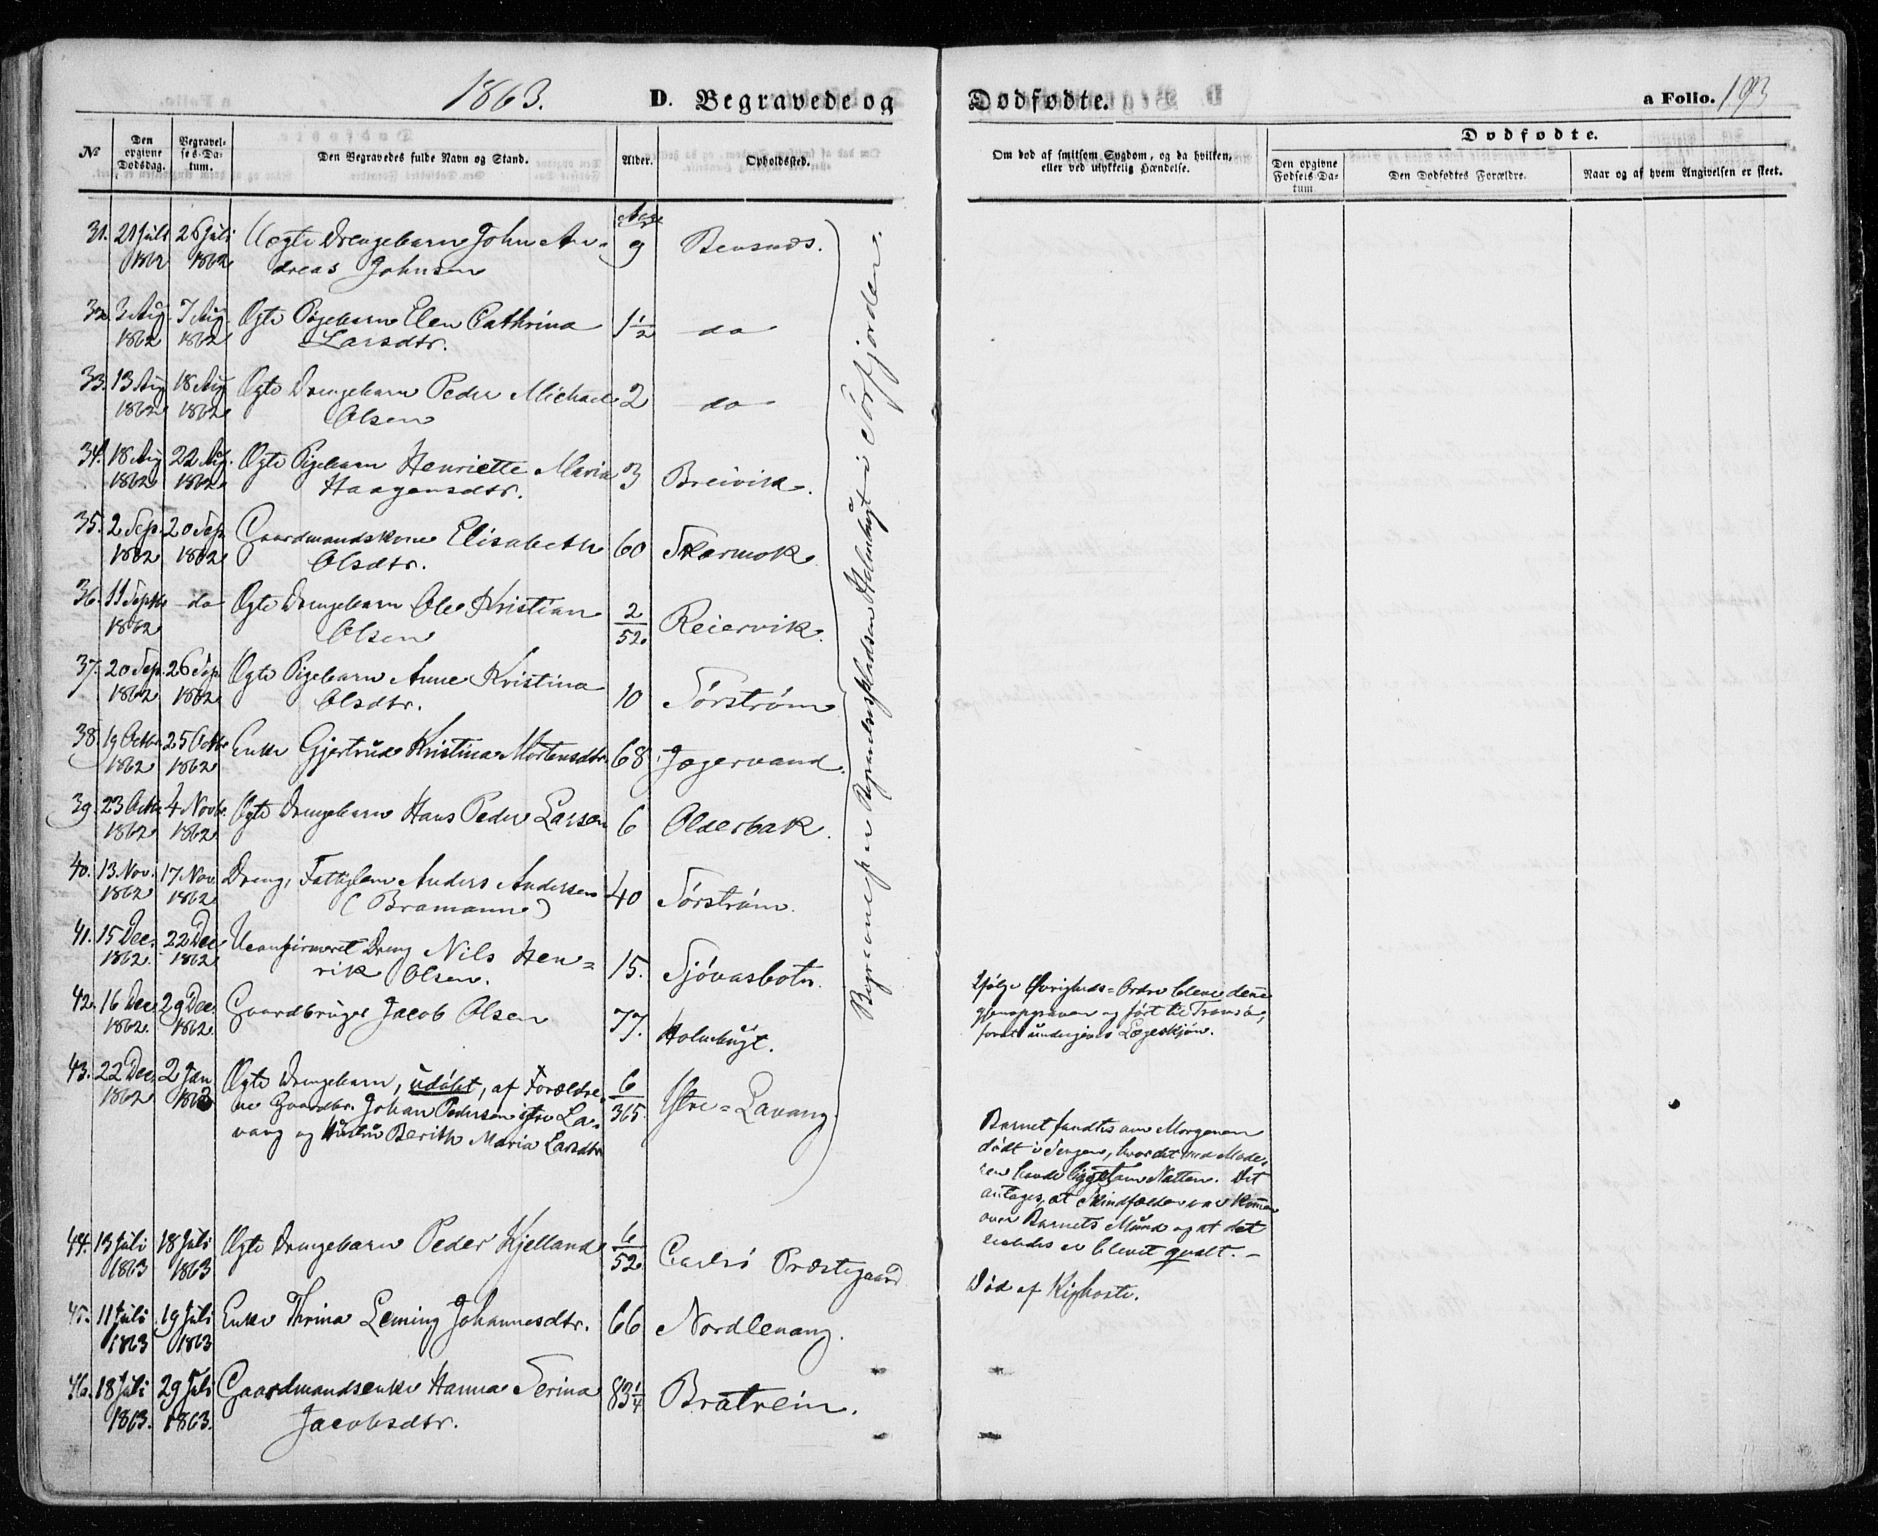 1863.
D. Begravede og Dødfødte.
a Folio. 193
№
Den opgivne Dødsdag.
Begravelses-Datum.
Den Begravedes fulde Navn og Stand.
Alder.
Opholdssted.
Om død af smitsom Sygdom, og da hvilken, eller ved ulykkelig Hændelse.
Dødfødte.
Den opgivne Fødsels-Datum
Den Dødfødtes Forældre.
Naar og af hvem Angivelsen er skeet.
Aar
31. 21 Juli 26 Juli Uægte Drengebarn John An-
1862 1862 dreas Johnsen 9 Bensnæs.
32. 3 Aug. 7 Aug. Ægte Pigebarn Elen Cathrina 1½ do
1862 1862 Larsdtr.
33. 13 Aug 18 Aug Ægte Drengebarn Peder Michael 2 do
1862 1862 Olsen
34. 18 Aug 22 Aug. Ægte Pigebarn Henriette Maria 3 Breivik.
1862 1862 Haagensdtr.
35. 2 Sep. 20 Sep. Gaardmandskone Elisabeth 60 Skarmok
1862 1862 Olsdtr.
36. 11 Septbr do Ægte Drengebarn Ole Kristian 2/52 Reiervik.
1862 Olsen
37. 20 Sep. 26 Sep. Ægte Pigebarn Anne Kristina 10 Sörström
1862 1862 Olsdtr.
38. 19 Octbr 25 Octbr Enke Gjertrud Kristina Mortensdtr. 68 Jægervand.
1862 1862
39. 23 Octbr 4 Novb. Ægte Drengebarn Hans Peder Larsen 6 Olderbak.
1862 1862
40. 13. Nov. 17. Nov. Dreng, Fattiglem Anders Andersen 40 Sörström.
1862 1862 (Bramann)
41. 15 Dec. 22 Dec. Uconfirmeret Dreng Nils Hen=
1862. 1862 rik Olsen. 15. Sjövasbotn.
42. 16 Dec. 29 Dec. Gaardbruger Jacob Olsen 77. Holmbugt.
1862. 1862
Ifølge Øvrigheds=Ordre bleve denne
gjenopgraven og ført til Tromsø,
for at undergives Lægeskjøn.
43. 22 Dec. 2 Jan. Ægte Drengebarn, udøbt, af Forældre-
1862 1863 ne Gaardbr. Johan Pedersen ytre La-
vang og Hustru Berith Maria Larsdtr 6/365. Ytre=Lavang.
Barnet fandtes om Morgenen
dødt i Sengen, hvor det med Mode-
ren havde ligget om Natten. Det
antages, at Skindfælden var kommen
over Barnets Mund og at det
saaledes er blevet qvalt. –
Begravne paa Kirkegaarden Holmbugt i Sörfjorden.
44. 13 Juli 18 Juli Ægte Drengebarn Peder Kjelland 6/52 Carlsö Præstegaard
1863 1863
Död af Kighoste.
45. 11 Juli 19 Juli Enke Thrina Leming Johannesdtr. 66 Nordlenang.
1863 1863
46. 18 Juli 29 Juli Gaardmandsenke Hanna Serina 83¼ Bratrein.
1863. 1863. Jacobsdtr.